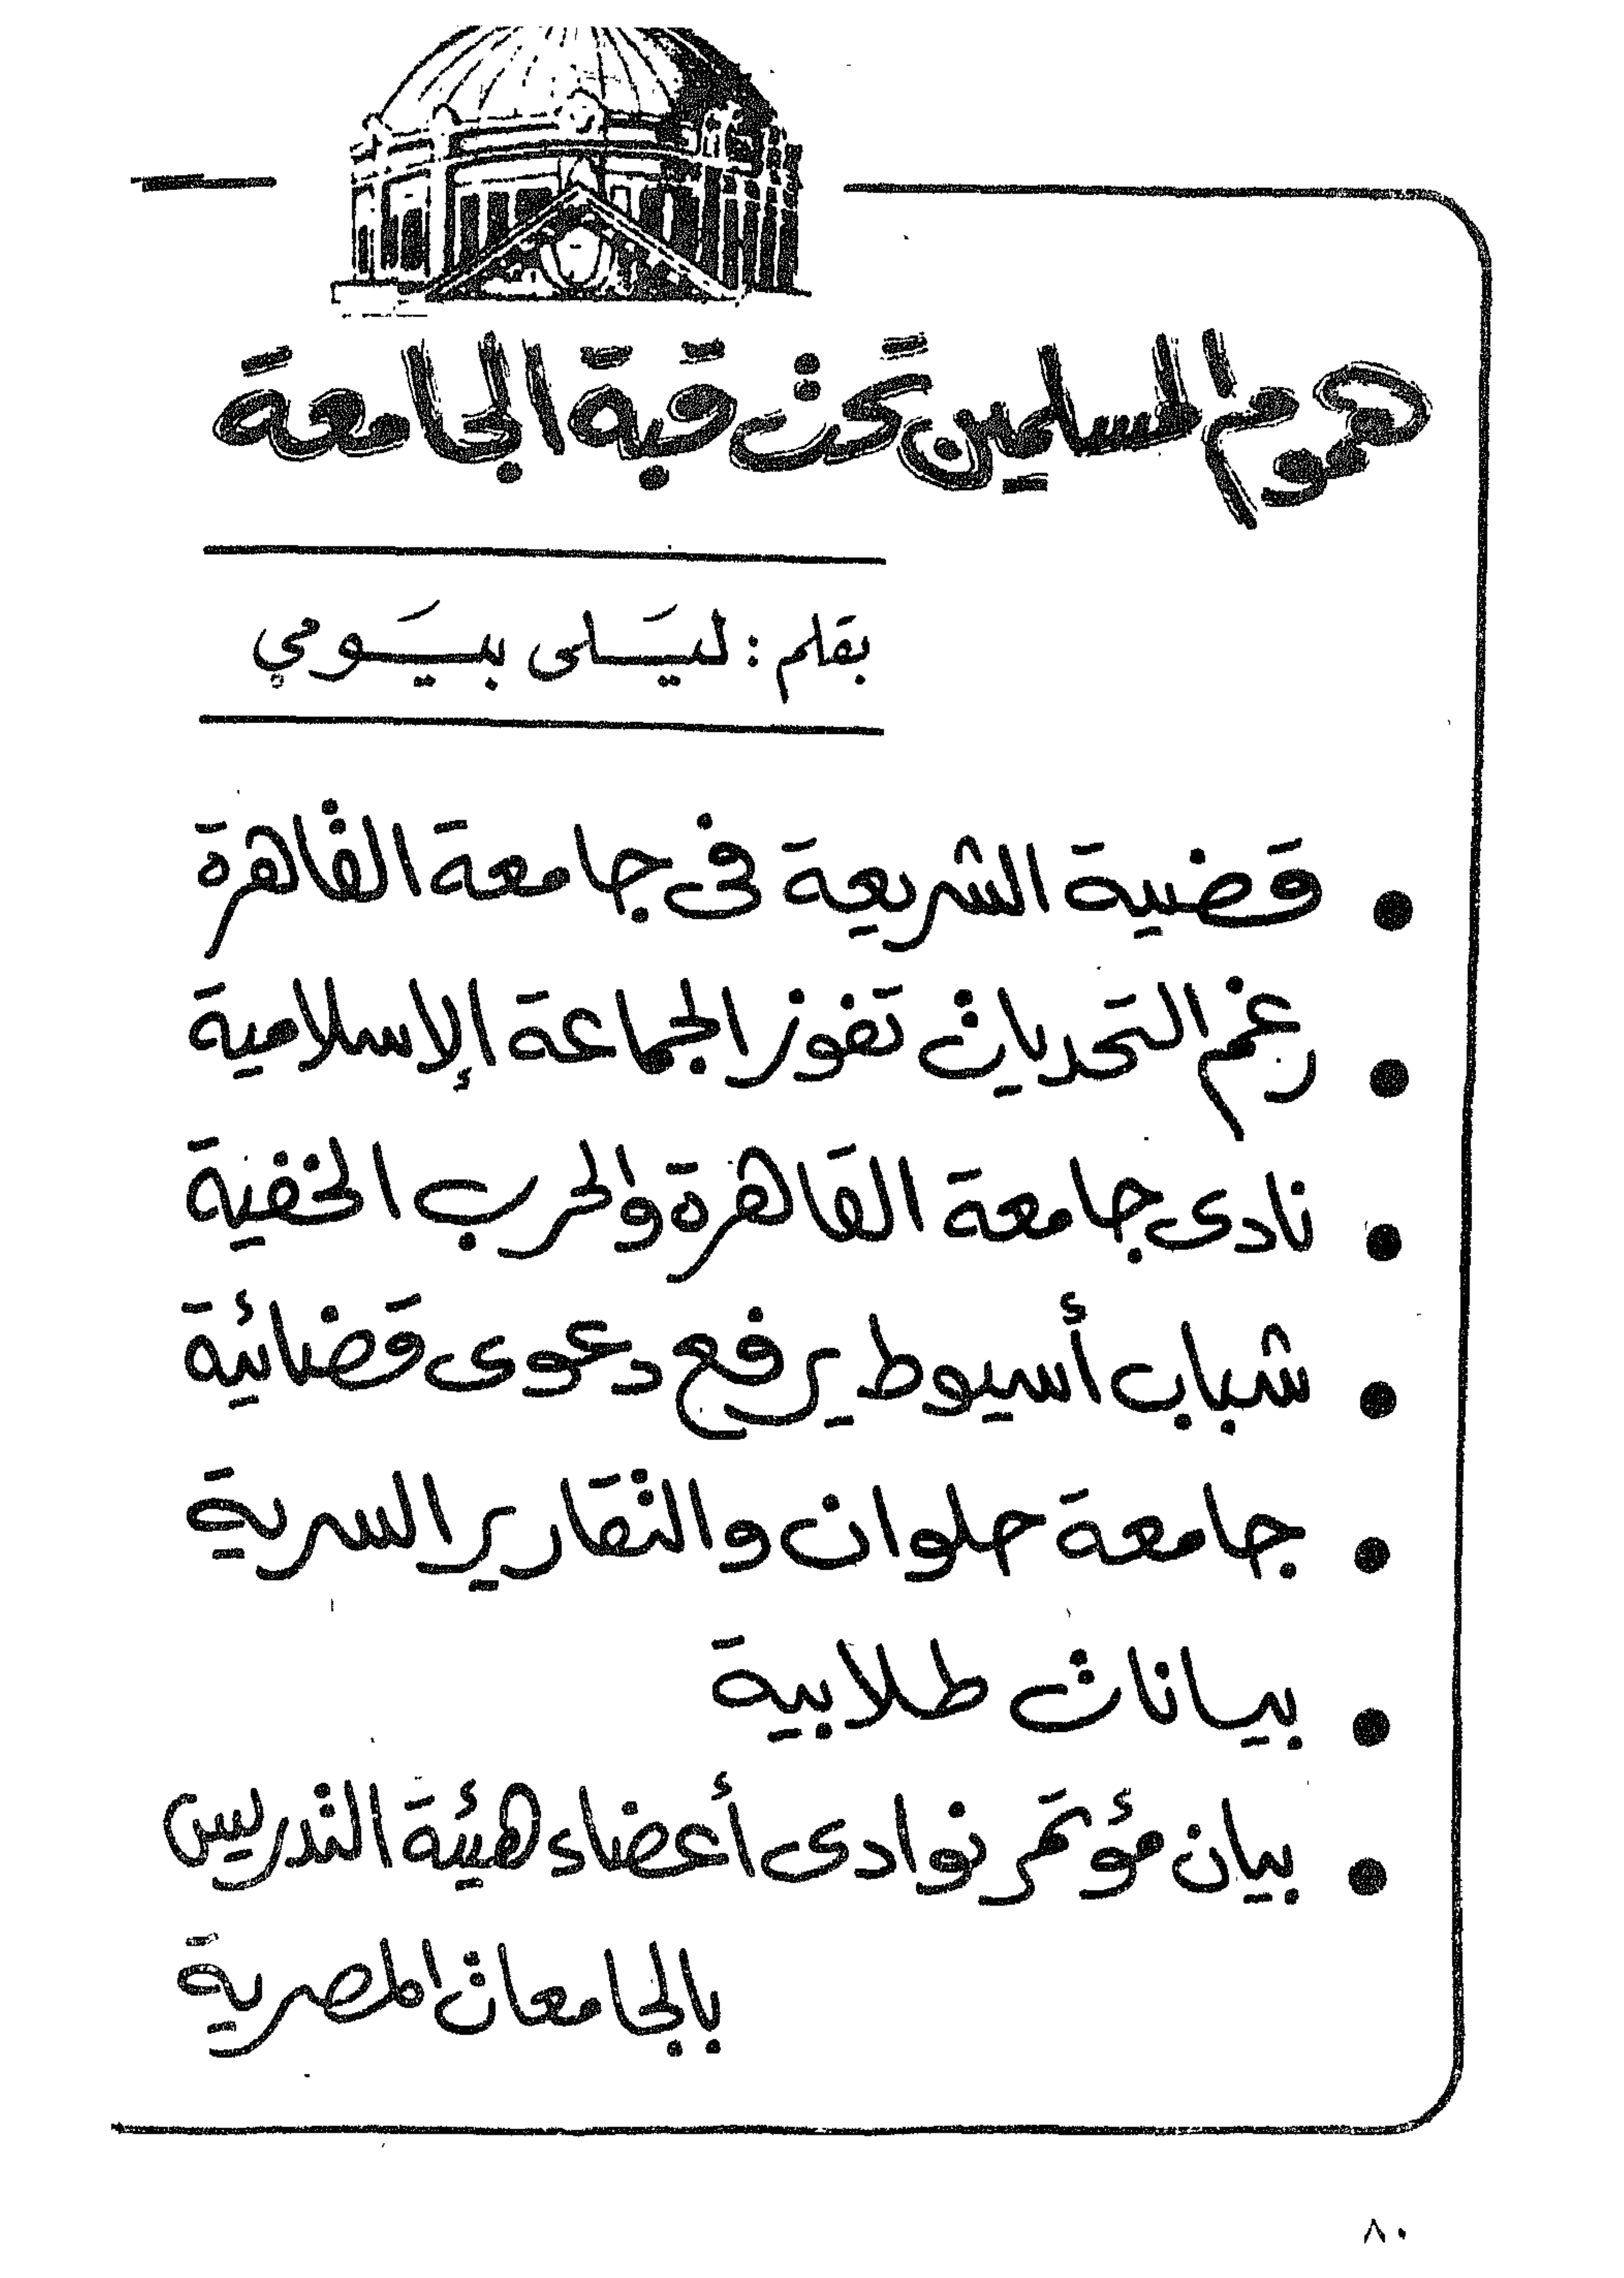 هموم المسلمين تحت قبة الجامعة
بقلم : ليَلى بيَومي
• قضية الشريعة فى جامعة القاهرة
• رغم التحديات تفوز الجماعة الإسلامية
• نادى جامعة القاهرة والحرب الخفية
• شباب أسيوط يرفع دعوى قضائية
• جامعة حلوان والتقارير السرية
• بيانات طلابية
• بيان مؤتمر نوادى أعضاء هيئة التدريس
بالجامعات المصرية
٨٠